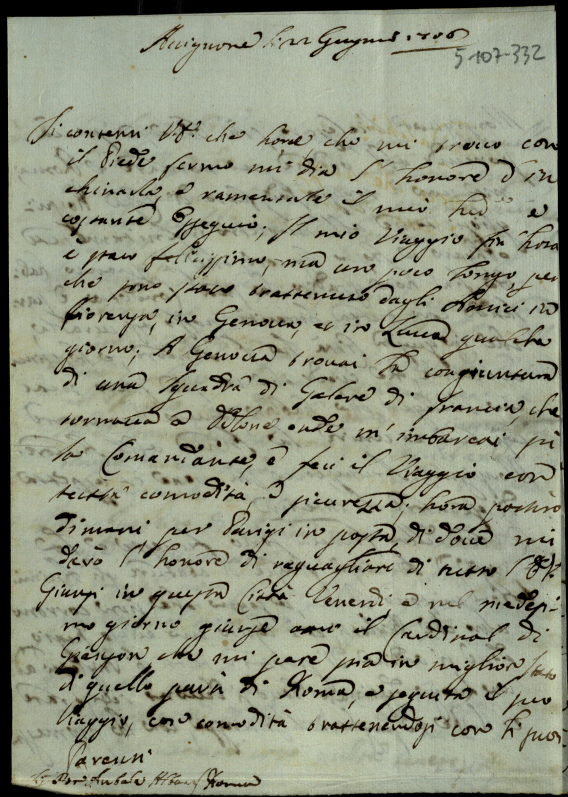 Avignone li 22 Giugno 1706
5-107-332
Si contenti V.S. che hora, che mi trovo con
il Piede fermo mi dia l'honore d'in
chinarla, e ramentarle il mio hum.o e
costante Ossequio; Il mio Viaggio fin hora
è stato felicissimo, mà un poco longo, per
che sono stato trattenuto dagli Amici in
Fiorenza, in Genova, et in Lucca qualche
giorno; A Genova trovai la congiuntura
di una squadra di Galere di Francia, che
tornava a Tolone onde m'imbarcai
la Comandante, e feci il Viaggio con
tutta comodità e sicurezza; hora
dimani per Parigi in posta, di dove mi
darò l'honore di raguagliare di tutto V.S.
Giunsi in questa Città Venerdì e nel medesi
mo giorno giunse il Cardinal di
che mi pare stia in miglior stato
di quello partì di Roma, e seguita il suo
Viaggio, con comodità trattenendosi con li suoi
Parenti
Annibale Albani Roma